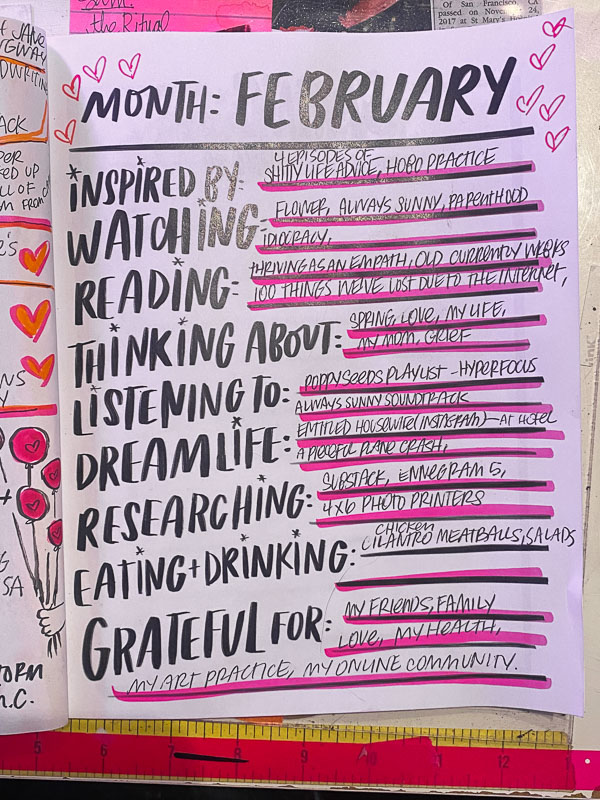 the Ritual
Of San Francisco, CA
passed on November 24,
2017 at St Mary's
JANE
ACK
ED UP
SA
ORM
N.C.
MONTH: FEBRUARY
INSPIRED BY: 4 EPISODES OF
SHITTY LIFE ADVICE, HOBO PRACTICE
WATCHING: FLOWER, ALWAYS SUNNY, PARENTHOOD
IDIOCRACY.
READING: THRIVING AS AN EMPATH, OLD CURRENTLY WEEKS
100 THINGS WE'VE LOST DUE TO THE INTERNET,
THINKING ABOUT: SPRING, LOVE, MY LIFE,
MY MOM, GRIEF
LISTENING TO: POPPYSEEDS PLAYLIST - HYPERFOCUS
ALWAYS SUNNY SOUNDTRACK
DREAMLIFE: ENTITLED HOUSEWIFE (INSTAGRAM) - AT HOTEL
A PIECEFUL PLANE CRASH,
RESEARCHING: SUBSTACK, ENNEGRAM 5,
4X6 PHOTO PRINTERS
EATING + DRINKING: CHICKEN
CILANTRO MEATBALLS, SALADS
GRATEFUL FOR: MY FRIENDS, FAMILY
LOVE, MY HEALTH,
MY ART PRACTICE, MY ONLINE COMMUNITY.
5 6 7 8 9 10 11 12